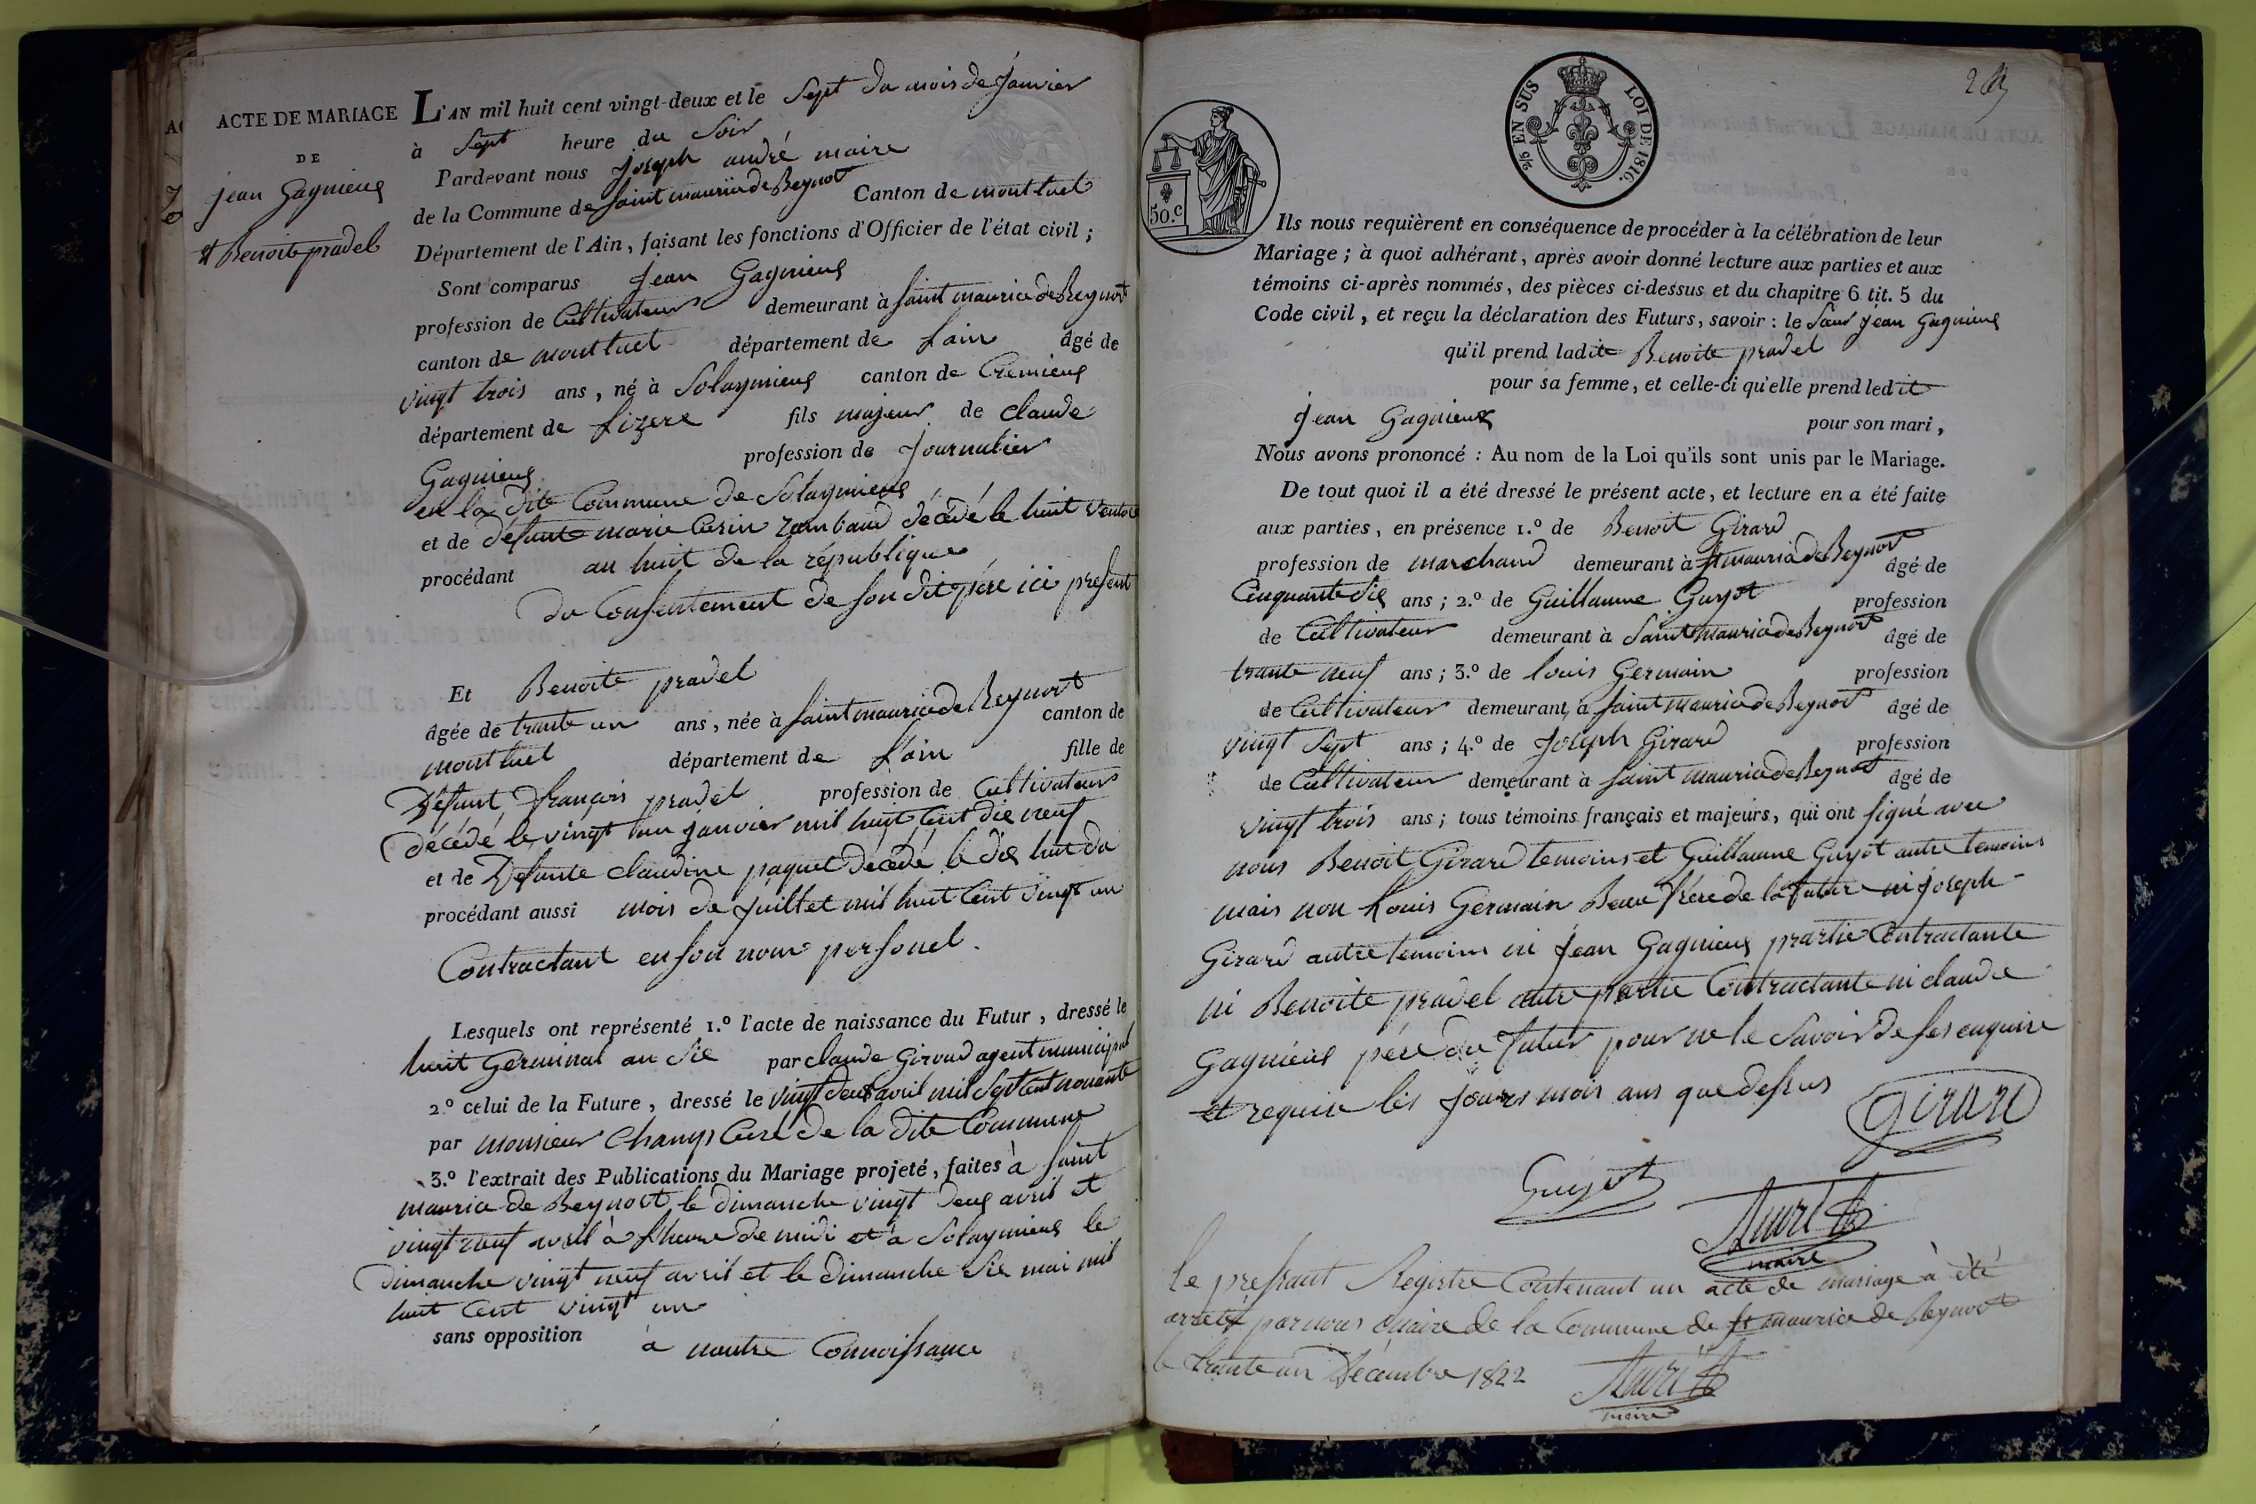 ACTE DE MARIAGE
DE
jean Gagnieux
et Benoite pradel
L'AN mil huit cent vingt-deux et le Sept du mois de janvier
à Sept heure du Soir
Pardevant nous joseph andré maire
de la Commune de Saint maurice de Beynost Canton de montluel
Département de l'Ain, faisant les fonctions d'Officier de l'état civil ;
Sont comparus jean Gagnieux
profession de Cultivateur demeurant à Saint maurice de Beynost
canton de montluel département de Lain âgé de
vingt trois ans, né à Solaymieux canton de Cremieux
département de Lizere fils majeur de claude
Gagnieux profession de journalier
en la dite Commune de Solaymieux
et de défunte marie Cusin rambaud décédé le huit ventose
procédant an huit de la république
du Consentement de son dit père ici present
Et Benoite pradel
âgée de trante un ans, née à Saint maurice de Beynost canton de
montluel département de Lain fille de
Défunt françois pradel profession de Cultivateur
décédé le vingt un janvier mil huit Cent dix neuf
et de Défunte claudine paquet décédé le dix huit du
procédant aussi mois de juillet mil huit Cent vingt un
Contractant en son nom personel.
Lesquels ont représenté 1.º l'acte de naissance du Futur, dressé le
huit Germinal an Six par claude Giroud agent municipal
2.º celui de la Future, dressé le vingt deux avril mil Sept Cent nonante
par monsieur Champ Curé de la dite Commune
3.º l'extrait des Publications du Mariage projeté, faites à Saint
maurice de Beynost le dimanche vingt deux avril et
vingt neuf avril à l'heure de midi et à Solaymieux le
dimanche vingt neuf avril et le dimanche Six mai mil
huit Cent vingt un
sans opposition à nautre Connoissance
2/5 EN SUS
LOI DE 1816.
50.c
Ils nous requièrent en conséquence de procéder à la célébration de leur
Mariage ; à quoi adhérant, après avoir donné lecture aux parties et aux
témoins ci-après nommés, des pièces ci-dessus et du chapitre 6 tit. 5 du
Code civil, et reçu la déclaration des Futurs, savoir : le Sieur jean Gagnieux
qu'il prend ladite Benoite pradel
pour sa femme, et celle-ci qu'elle prend ledit
jean Gagnieux pour son mari,
Nous avons prononcé : Au nom de la Loi qu'ils sont unis par le Mariage.
De tout quoi il a été dressé le présent acte, et lecture en a été faite
aux parties, en présence 1.º de Benoit Girard
profession de marchand demeurant à St maurice de Beynost âgé de
Cinquante Six ans ; 2.º de Guillaume Guyot profession
de Cultivateur demeurant à Saint maurice de Beynost âgé de
trante neuf ans ; 3.º de louis Germain profession
de Cultivateur demeurant à Saint maurice de Beynost âgé de
vingt Sept ans ; 4.º de joseph Girard profession
de Cultivateur demeurant à Saint maurice de Beynost âgé de
vingt trois ans ; tous témoins français et majeurs, qui ont signé avec
nous Benoit Girard temoins et Guillaume Guyot autre temoins
mais non Louis Germain Beau frère de la future ni joseph
Girard autre temoins ni jean Gagnieux prartie Contractante
ni Benoite pradel autre partie Contractante ni claude
Gagnieux père du futur pour ne le Savoir de ses enquire
et require les jours mois ans que dessus
Girard
Guyot
André
maire
le pressant Registre Contenant un acte de mariage à été
arreté par nous maire de la Commune de St maurice de Beynost
le trante un Décembre 1822
André
maire